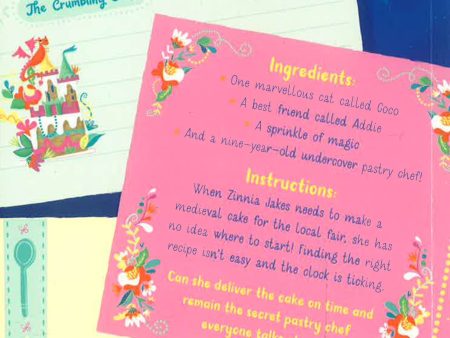 The Crumbling
Ingredients:
One marvellous cat called Coco
A best friend called Addie
A sprinkle of magic
And a nine-year-old undercover pastry chef!
Instructions:
When Zinnia Jakes needs to make a
medieval cake for the local fair, she has
no idea where to start! Finding the right
recipe isn't easy and the clock is ticking.
Can she deliver the cake on time and
remain the secret pastry chef
everyone